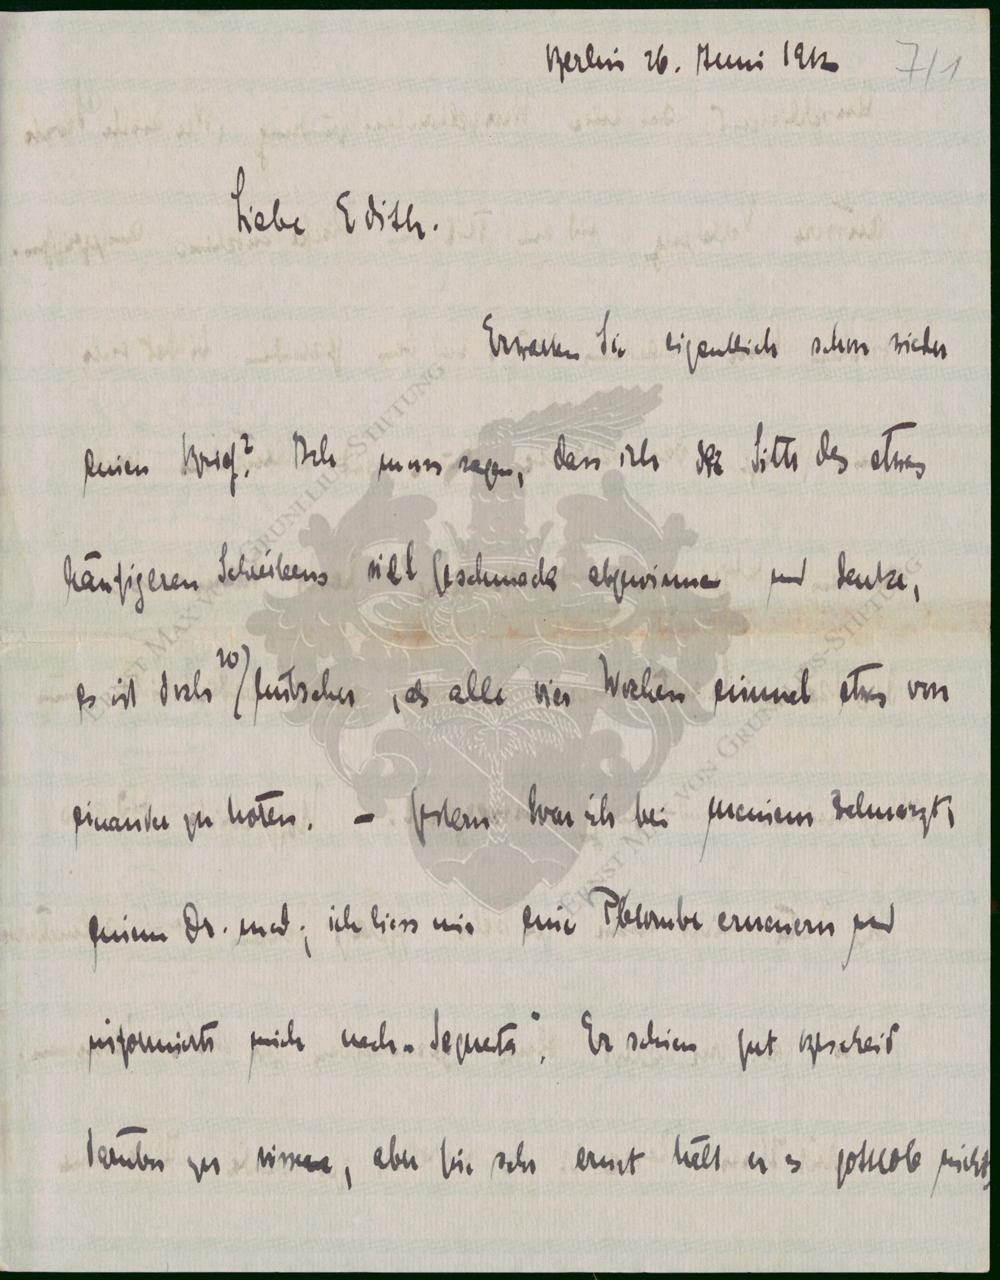 Berlin 26. Juni 1912 7/1
Liebe Edith.
Erwarten Sie eigentlich schon wieder
einen Brief? Ich muss sagen, dass ich der Sitte des etwas
häufigeren Schreibens viel Geschmack abgewinne und denke,
es ist doch 20) hübscher, als alle vier Wochen einmal etwas von
einander zu hören. – Gestern war ich bei meinem Zahnarzt,
einem Dr. med.; ich liess mir eine Plombe erneuern und
informierte mich nach „
Er schien gut Bescheid
darüber zu wissen, aber für sehr ernst hält er es gottlob nicht
ERNST MAX VON GRUNELIUS-STIFTUNG
ERNST MAX VON GRUNELIUS-STIFTUNG